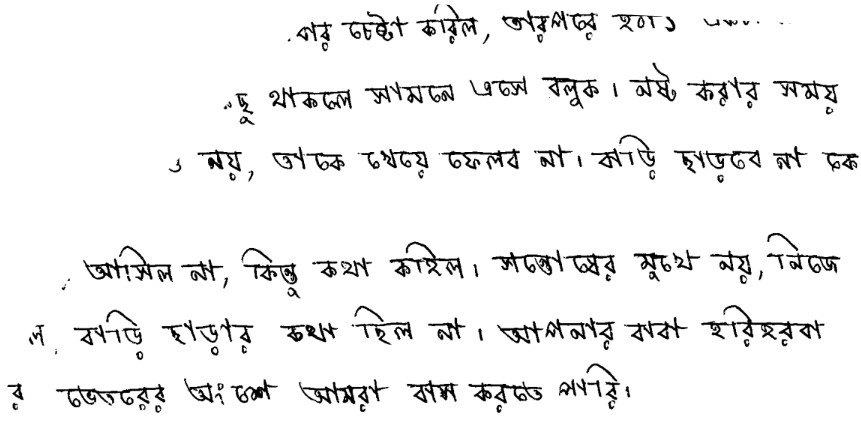 বার চেষ্টা করিল, তারপরে হঠাৎ
থাকলে সামনে এসে বলুক। নষ্ট করার সময়
নয়, তাকে খেয়ে ফেলব না। বাড়ি ছাড়বে না কে
আসিল না, কিন্তু কথা কহিল। সন্তোষের মুখে নয়, নিজে
বাড়ি ছাড়ার কথা ছিল না। আপনার বাবা হরিহরবা
র ভেতরের অংশে আমরা বাস করতে পারি।